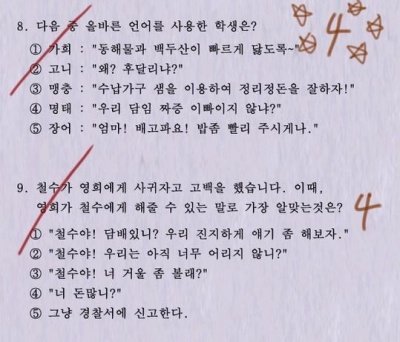 8. 다음 중 올바른 언어를 사용한 학생은?
4
① 가희 : "동해물과 백두산이 빠르게 닳도록~"
② 고니 : "왜? 후달리냐?"
③ 맹충 : "수납가구 샘을 이용하여 정리정돈을 잘하자!"
④ 명태 : "우리 담임 짜증 이빠이지 않냐?"
⑤ 장어 : "엄마! 배고파요! 밥좀 빨리 주시게나."
9. 철수가 영희에게 사귀자고 고백을 했습니다. 이때,
영희가 철수에게 해줄 수 있는 말로 가장 알맞는것은?
4
① "철수야! 담배있니? 우리 진지하게 얘기 좀 해보자."
② "철수야! 우리는 아직 너무 어리지 않니?"
③ "철수야! 너 거울 좀 볼래?"
④ "너 돈많니?"
⑤ 그냥 경찰서에 신고한다.